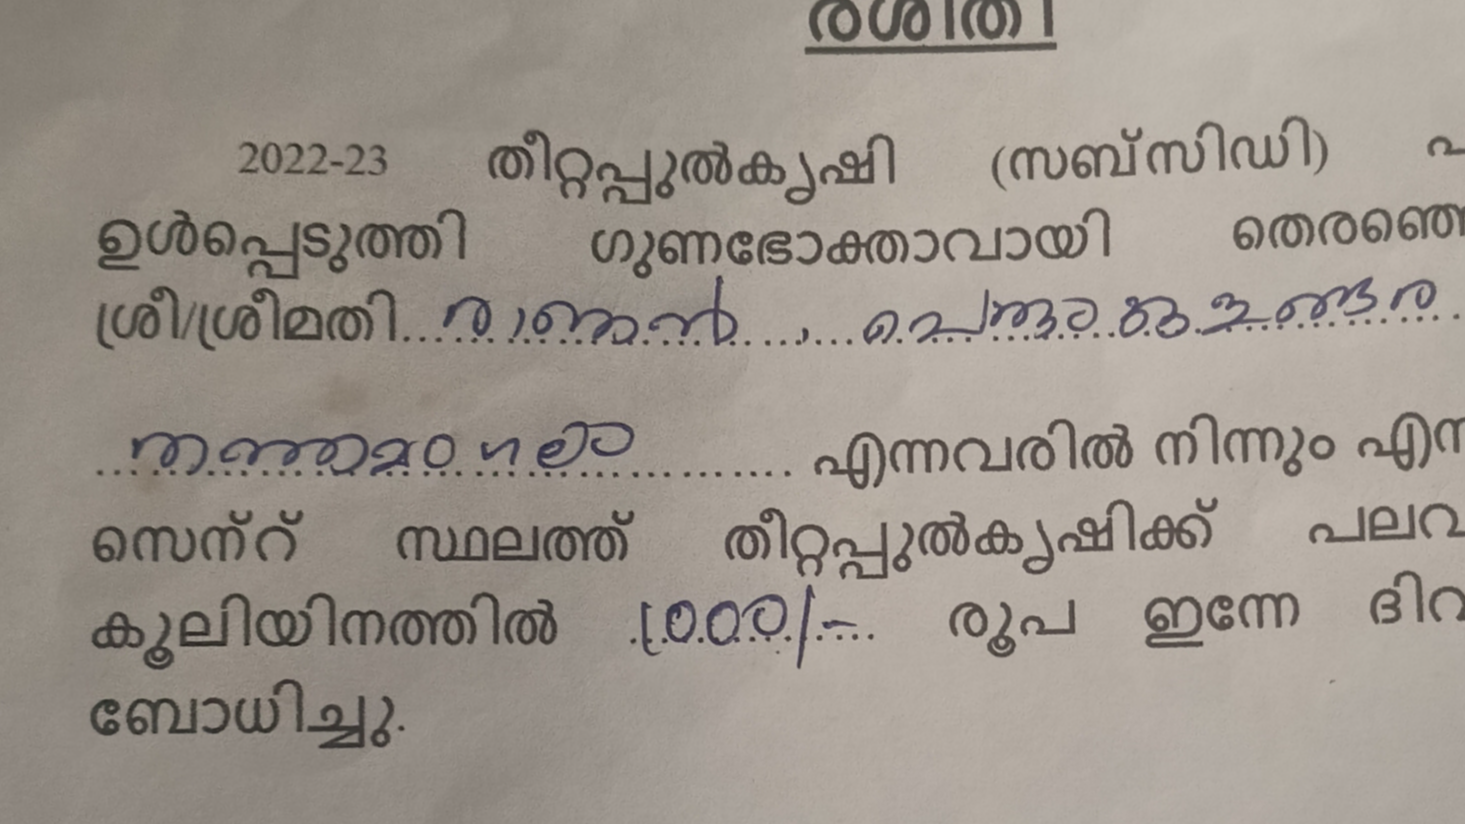 രശീതി
2022-23 തീറ്റപ്പുൽകൃഷി (സബ്സിഡി)
ഉൾപ്പെടുത്തി ഗുണഭോക്താവായി തെരഞ്ഞെ
ശ്രീ/ശ്രീമതി രാജൻ
തത്തമംഗലം എന്നവരിൽ നിന്നും എന
സെന്റ് സ്ഥലത്ത് തീറ്റപ്പുൽകൃഷിക്ക് പലവ
കൂലിയിനത്തിൽ 1000/- രൂപ ഇന്നേ ദിവ
ബോധിച്ചു.